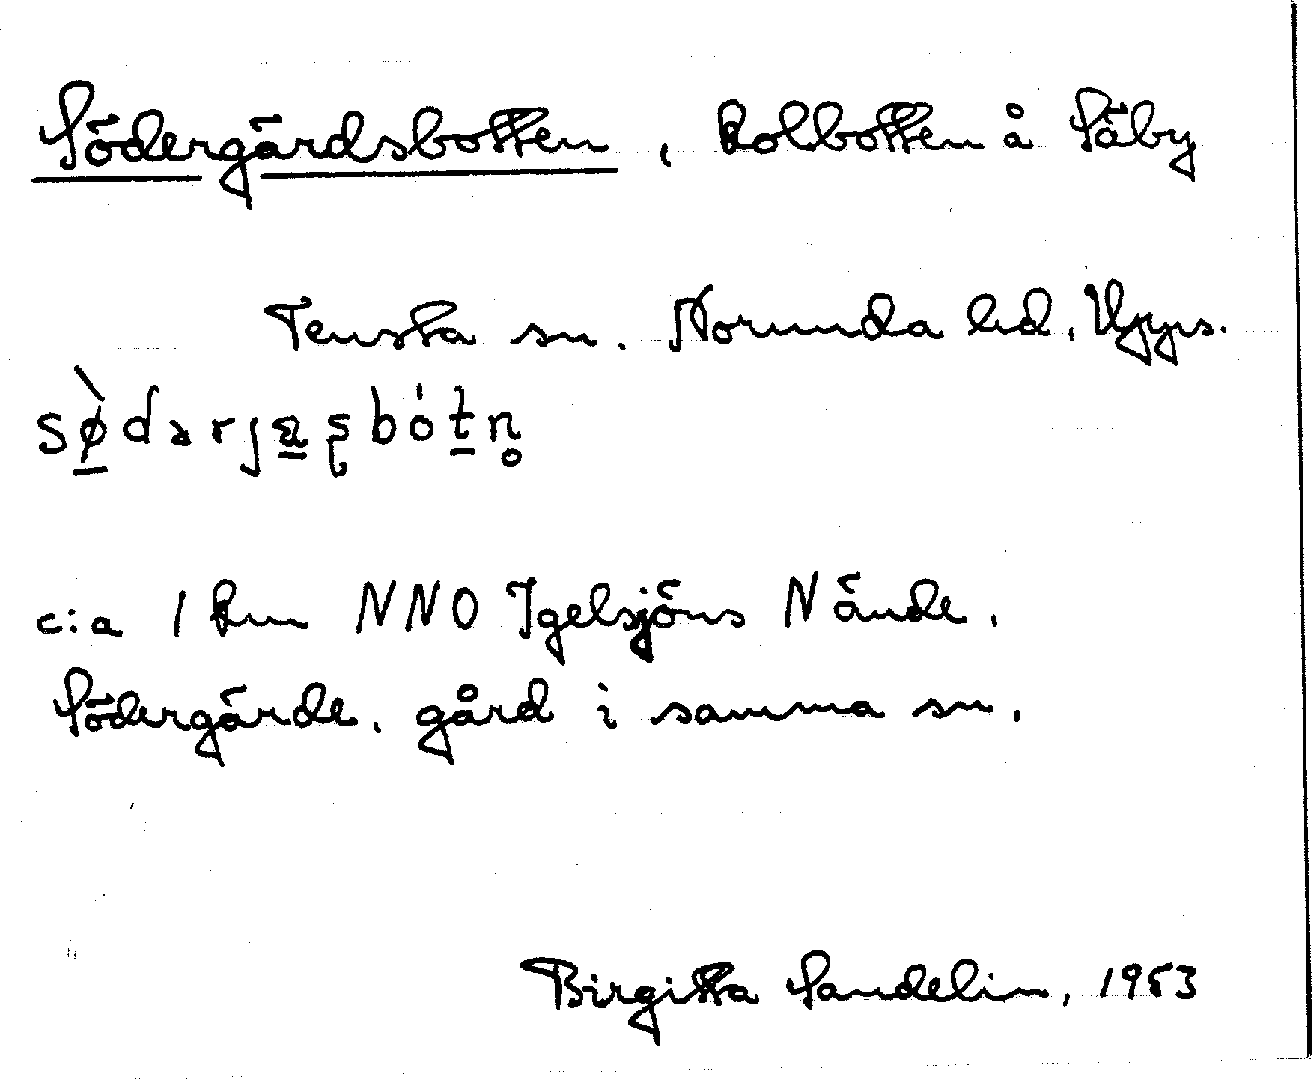 Södergärdsbotten, kolbotten å Säby
Tensta sn. Norunda hd, Upps.
sø̱̀dərjæ̱ʂbót̠n̥
c:a 1 km NNO Igelsjöns N ände.
Södergärde, gård i samma sn.
Birgitta Sandelin, 1953